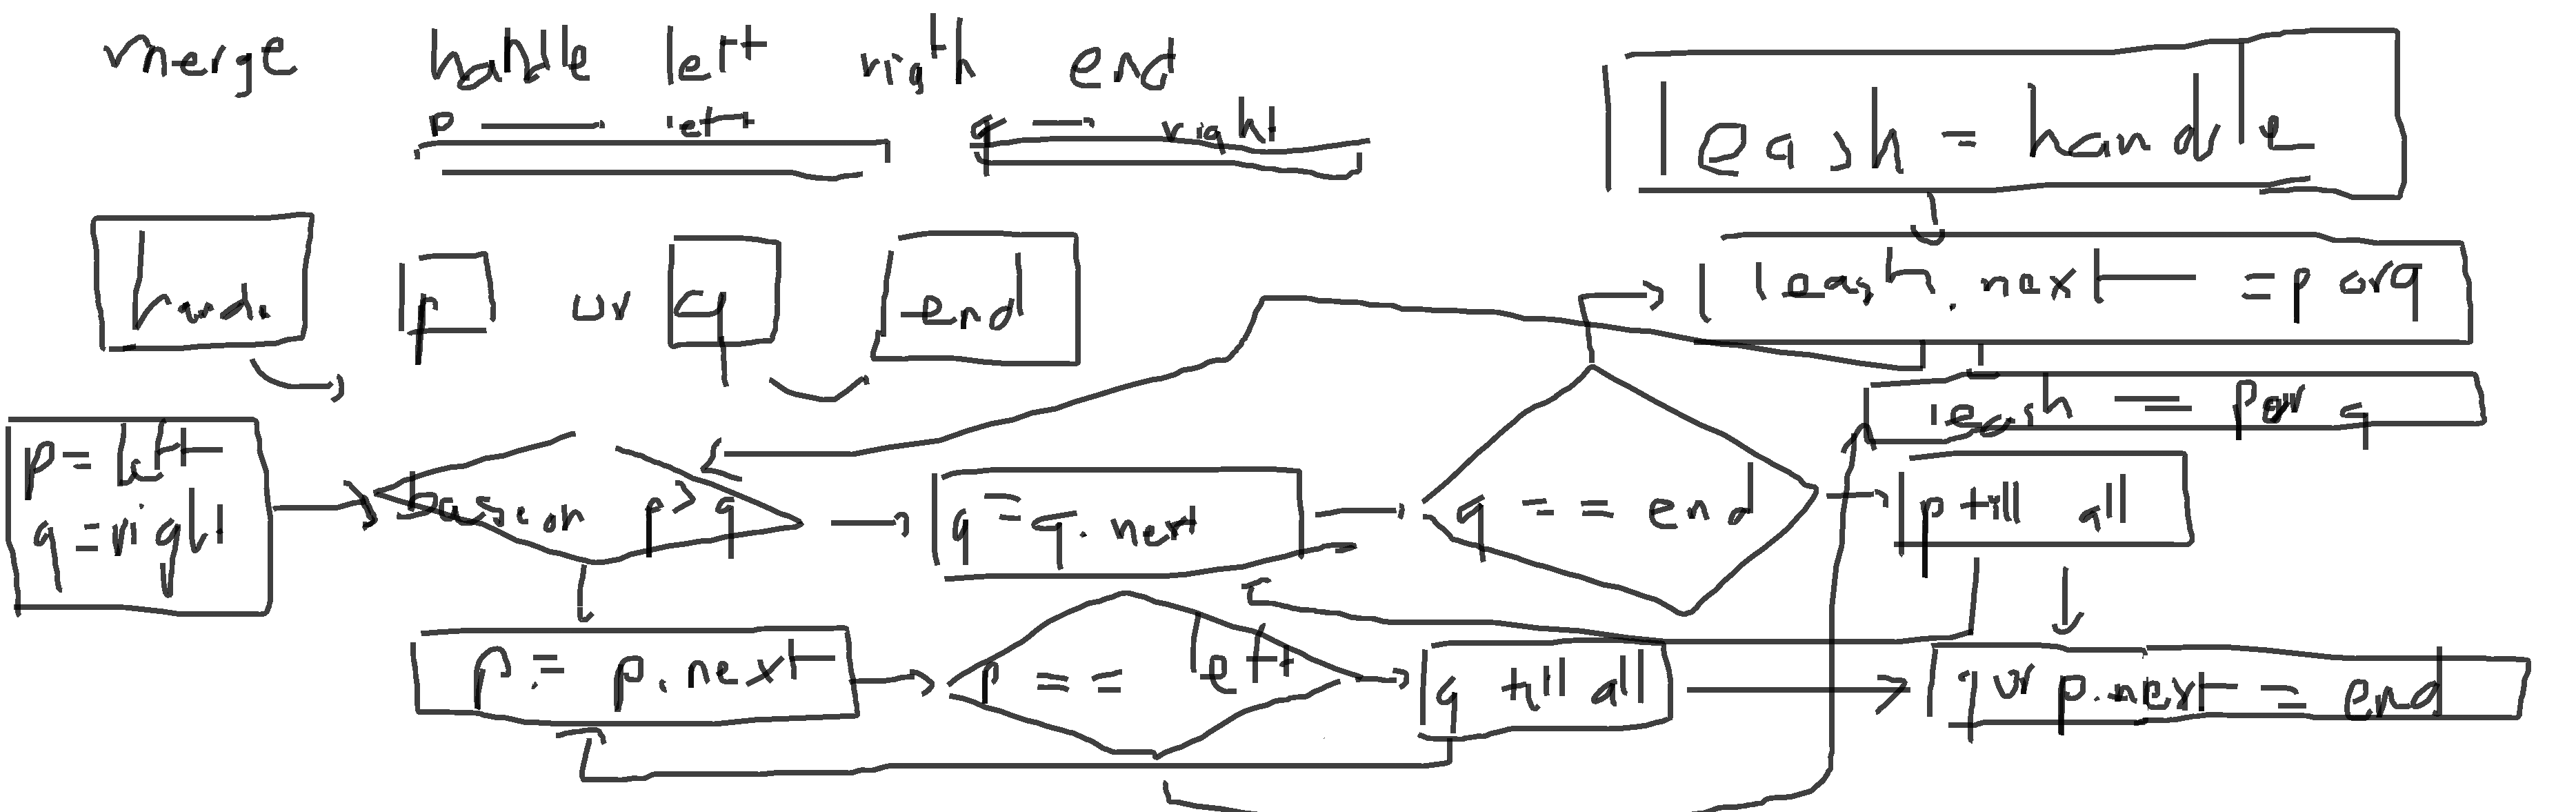 merge handle left right end
p left q right
leash = handle
hand. p or q end
leash.next = p or q
leash = p or q
p = left
q = right
base on p > q
q = q.next
q == end
p till all
p = p.next
p == left
q till all
q or p.next = end